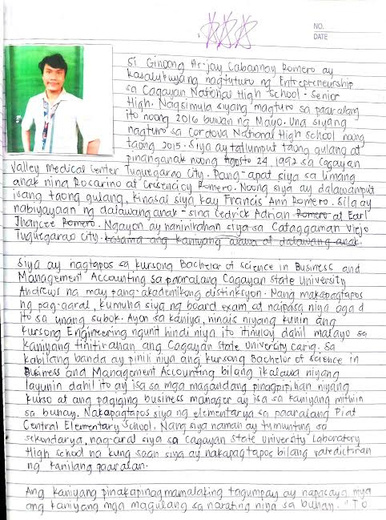 NO.
DATE
Si Ginoong Ar-jay Cabannoy Romero ay
kasalukuyang nagtuturo ng Entrepreneurship
sa Cagayan National High School - Senior
High. Nagsimula siyang magturo sa paaralang
ito noong 2016 buwan ng Mayo. Una siyang
nagturo sa Cordova National High School noong
taong 2015. Siya ay tatlumput taong gulang at
pinanganak noong Agosto 24, 1992 sa Cagayan
Valley Medical Center Tuguegarao City. Pang-apat siya sa limang
anak nina Rosarino at Crescency Romero. Noong siya ay dalawamput
isang taong gulang, kinasal siya kay Francis Ann Romero. Sila ay
nabiyayaan ng dalawang anak sina Cedrick Adrian Romero at Earl
Jhancee Romero. Ngayon ay naninirahan siya sa Cataggaman Viejo
Tuguegarao City. kasama ang kaniyang asawa at dalawang anak.
Siya ay nagtapos sa kursong Bachelor of science in Business and
Management Accounting sa paaralang Cagayan State University
Andrews na may pang-akademikong distinksyon. Nang makapagtapos
ng pag-aaral, kumuha siya ng board exam at naipasa niya agad
ito sa unang subok. Ayon sa kaniya, nais niyang kunin ang
kursong Engineering ngunit hindi niya ito itinuloy dahil malayo sa
kaniyang tinitirahan ang Cagayan State University carig. Sa
kabilang banda ay pinili niya ang kursong Bachelor of science in
Business and Management Accounting bilang ikalawa niyang
layunin dahil ito ay isa sa mga magandang pinagpilian niyang
kurso at ang pagiging business manager ay isa sa kaniyang mithiin
sa buhay. Nakapagtapos siya ng elementarya sa paaralang Piat
Central Elementary School. Nang siya naman ay tumuntung sa
sekundarya, nag-aral siya sa Cagayan State University Laboratory
High School na kung saan siya ay nakapagtapos bilang valedictirian
ng kanilang paaralan.
Ang kaniyang pinakapinagmamalaking tagumpay ay napasaya niya
ang kaniyang mga magulang sa narating niya sa buhay. "To